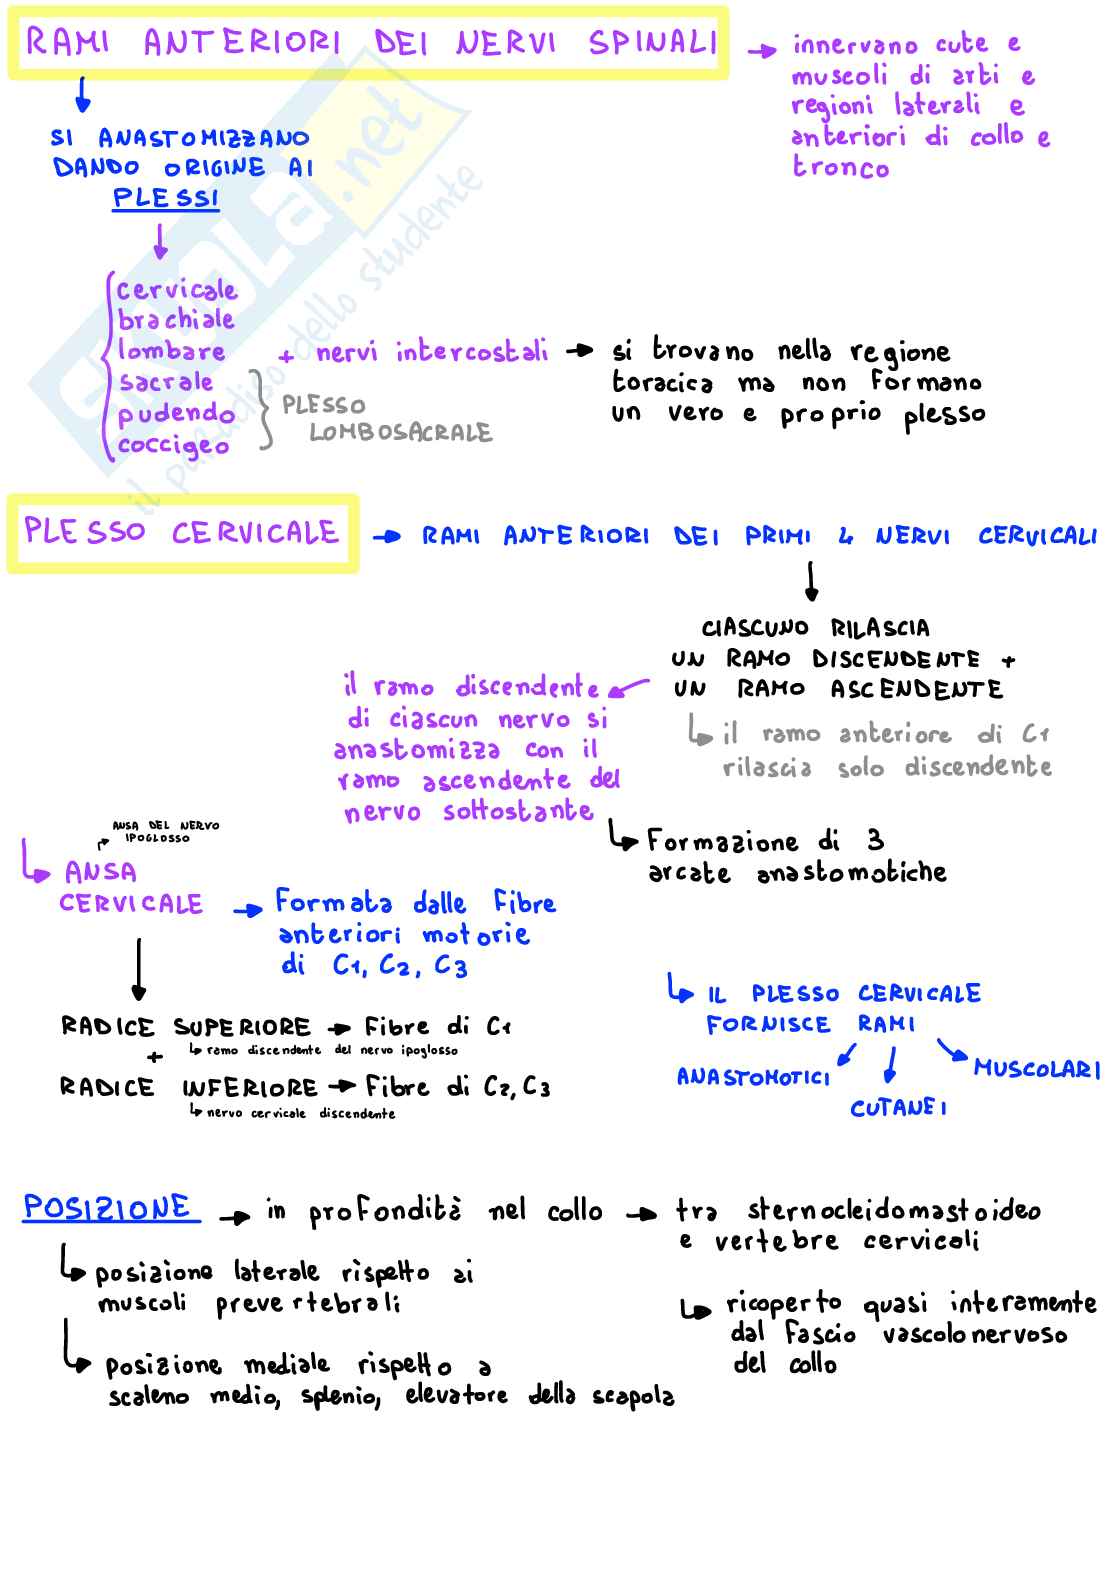 RAMI ANTERIORI DEI NERVI SPINALI → innervano cute e
muscoli di arti e
regioni laterali e
anteriori di collo e
tronco
SI ANASTOMIZZANO
DANDO ORIGINE AI
PLESSI
cervicale
brachiale
lombare
sacrale
pudendo
coccigeo
PLESSO
LOMBOSACRALE
+ nervi intercostali → si trovano nella regione
toracica ma non formano
un vero e proprio plesso
SKUOLa.net
il paradiso dello studente
PLESSO CERVICALE → RAMI ANTERIORI DEI PRIMI 4 NERVI CERVICALI
CIASCUNO RILASCIA
UN RAMO DISCENDENTE +
UN RAMO ASCENDENTE
il ramo anteriore di C1
rilascia solo discendente
il ramo discendente
di ciascun nervo si
anastomizza con il
ramo ascendente del
nervo sottostante
Formazione di 3
arcate anastomotiche
ANSA DEL NERVO
IPOGLOSSO
ANSA
CERVICALE → Formata dalle Fibre
anteriori motorie
di C1, C2, C3
RADICE SUPERIORE → Fibre di C1
ramo discendente del nervo ipoglosso
+
RADICE INFERIORE → Fibre di C2, C3
nervo cervicale discendente
IL PLESSO CERVICALE
FORNISCE RAMI
ANASTOMOTICI
CUTANEI
MUSCOLARI
POSIZIONE → in profondità nel collo → tra sternocleidomastoideo
e vertebre cervicali
posizione laterale rispetto ai
muscoli prevertebrali
posizione mediale rispetto a
scaleno medio, splenio, elevatore della scapola
ricoperto quasi interamente
dal fascio vascolonervoso
del collo